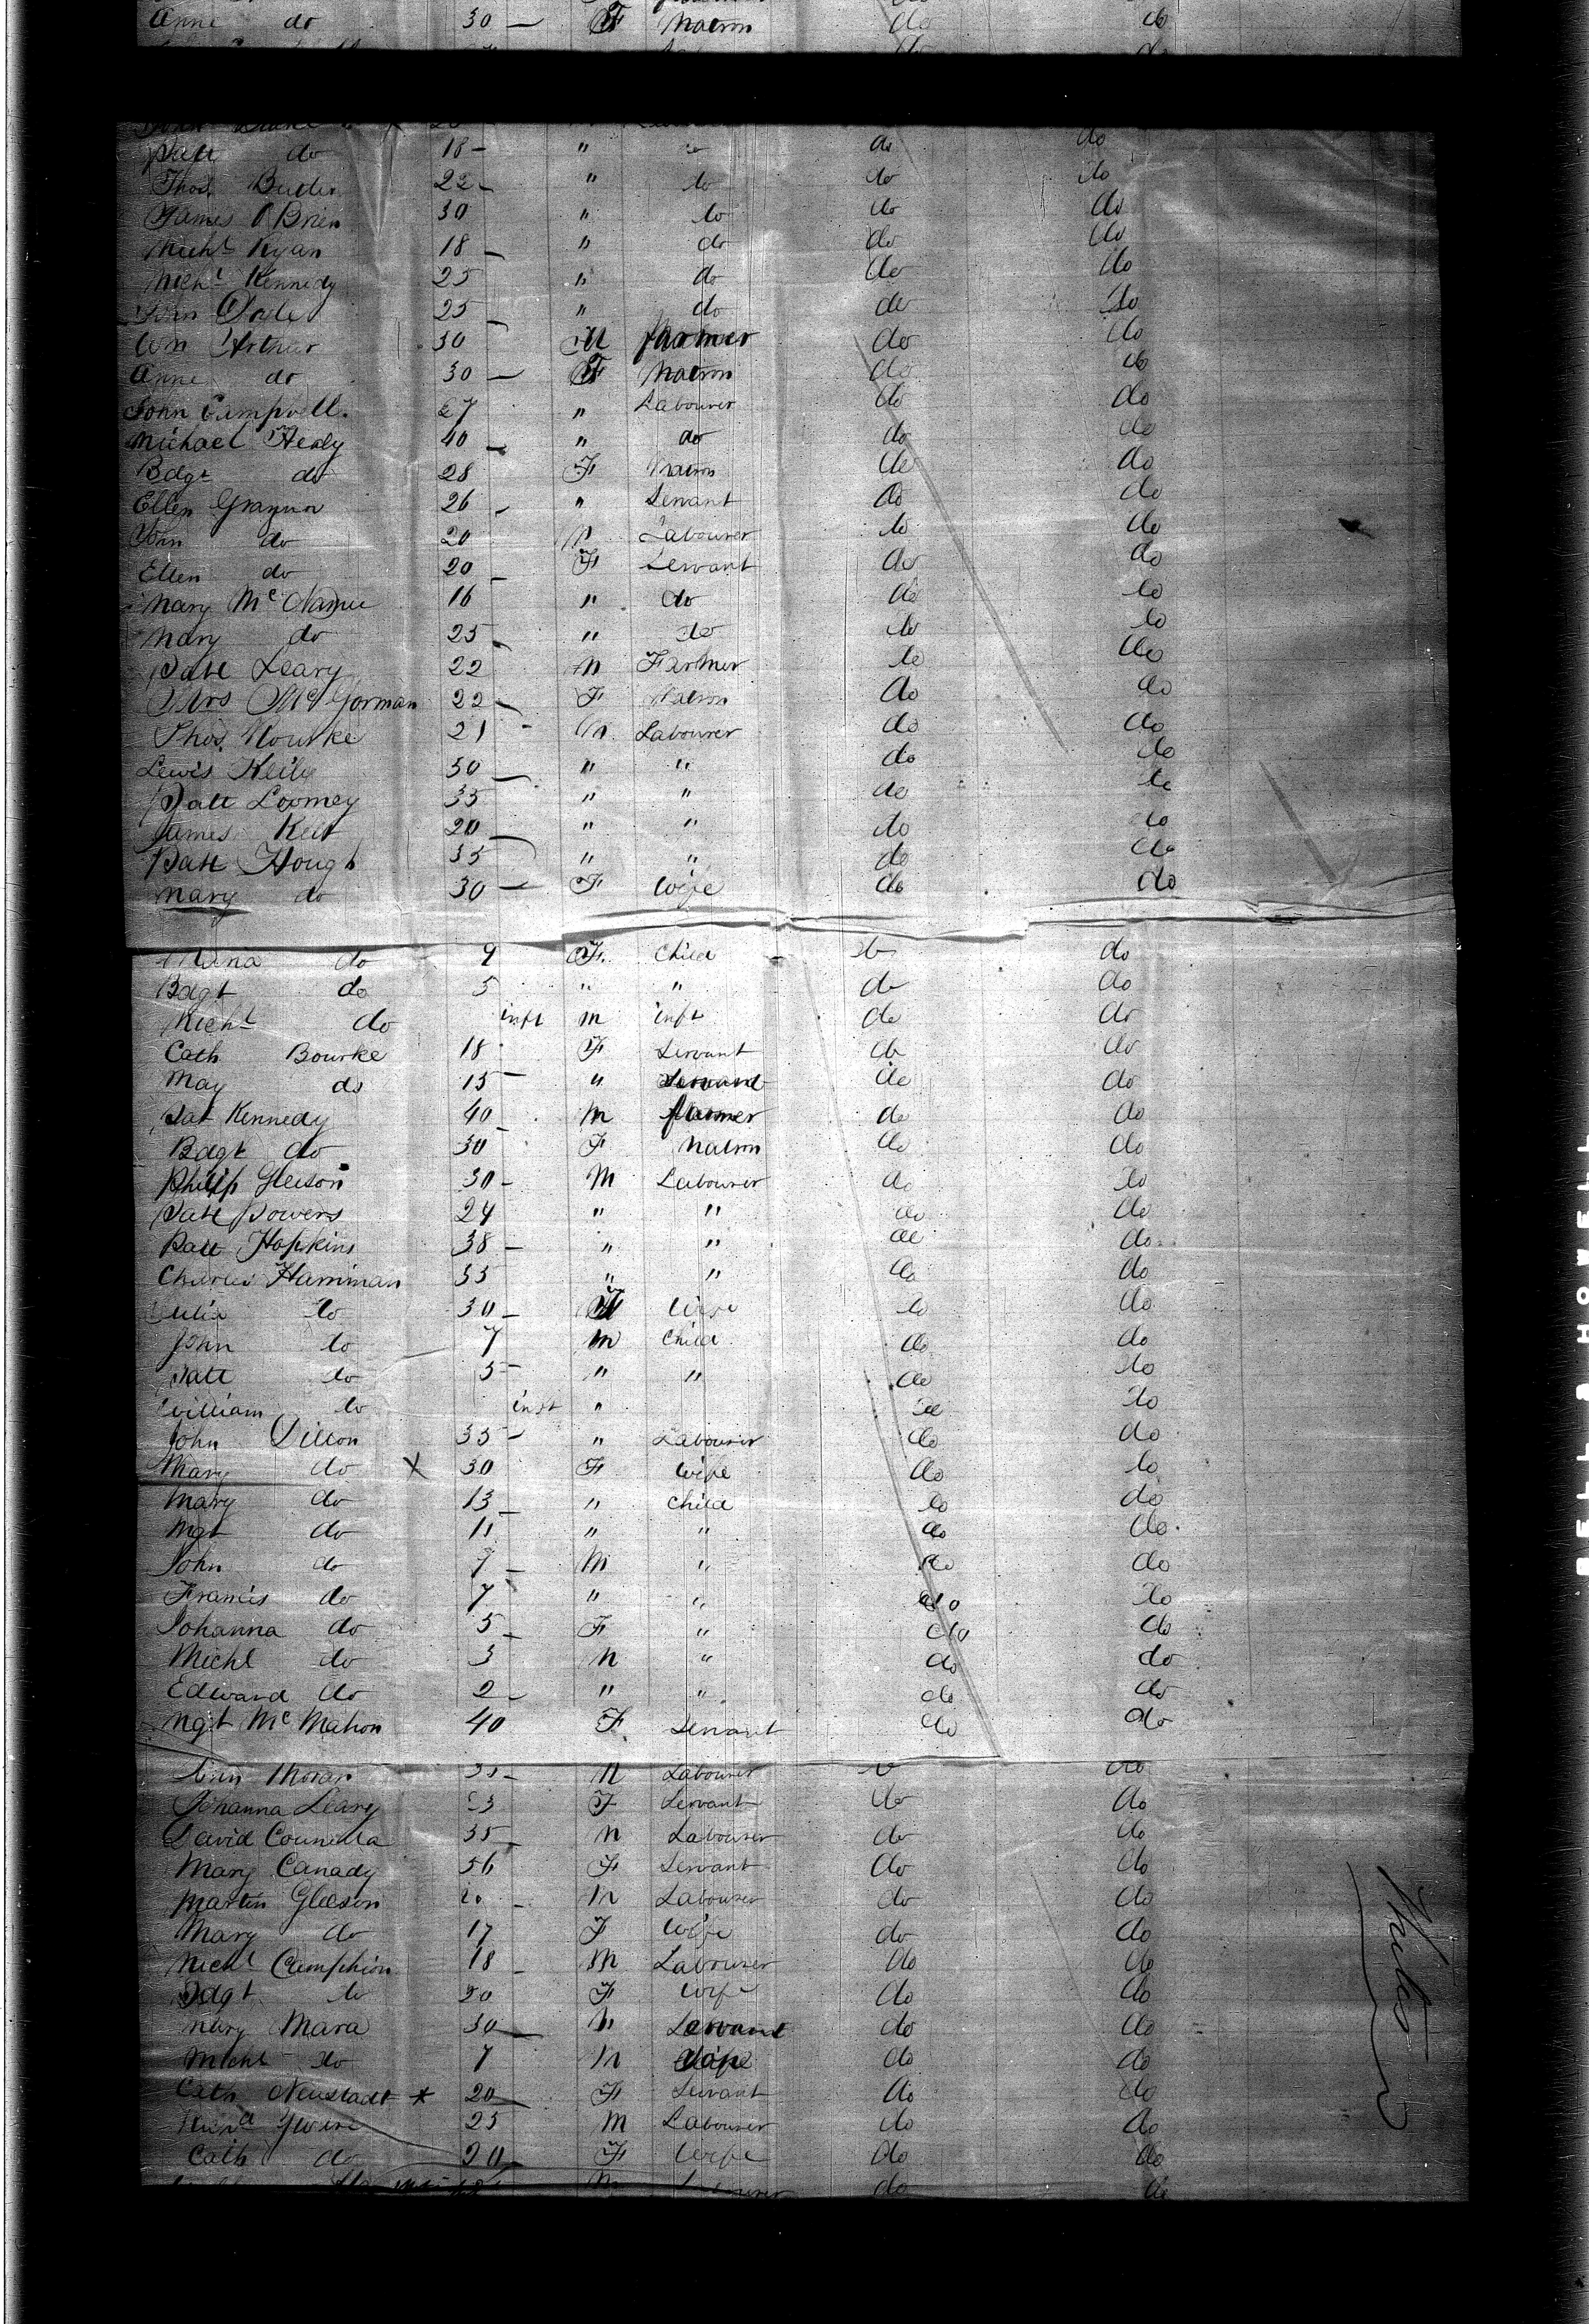 Anne do 30 — F Matron do do
Patt do 18 — " do do
Thos. Butler 22 — " do do do
James O Brien 30 " do do do
Michl Ryan 18 — " do do do
Michl Kennedy 25 " do do do
25 — " do do do
Wm Arthur 30 M farmer do do
Anne do 30 — F Matron do do
John Campbell. 27 " Labourer do do
Michael Healy 40 — " do do do
Bdgt do 28 F Matron do do
Ellen 26 — " Servant do do
John do 20 M Labourer do do
Ellen do 20 — F Servant do do
Mary Mc Namee 16 " do do do
Mary do 25 — " do do do
Patt Leary 22 M Farmer do do
Mrs Mc Gorman 22 — F Matron do do
Thos. Rourke 21 - M Labourer do do
Lewis Keily 50 — " " do do
Patt Loomey 35 " " do do
James 20 — " " do do
Patt Hough 35 " " do do
Mary do 30 — F Wife do do
do 9 F. Child do do
Bdgt do 5 " " do do
Michl do inft M inft do do
Cath Bourke 18 F Servant do do
May do 15 — " Servant do do
Pat Kennedy 40 M farmer do do
Bdgt do 30 F Matron do do
Philip Gleison 30 - M Labourer do do
Patt Powers 24 " " do do
Patt Hopkins 38 — " " do do
Charles Harriman 35 " " do do
Julia do 30 — F Wife do do
John do 7 M Child do do
Patt do 5 — " " do do
William do inft " do do
John Dillon 35 — " Labourer do do
Mary do X 30 F Wife do do
Mary do 13 — " Child do do
Mgt do 11 " " do do
John do 9 — M " do do
Francis do 7 " " do do
Johanna do 5 — F " do do
Michl do 3 M " do do
Edward do 2 — " " do do
Mgt Mc Mahon 40 F. Servant do do
Moran 35 — M Labourer do do
Johanna Leary 23 F Servant do do
David 35 — M Labourer do do
Mary Canady 56 F Servant do do
Martin Gleeson — M Labourer do do
Mary do 17 F Wife do do
Michl Camphion 18 — M Labourer do do
Bdgt do 20 F Wife do do
Mary Mara 30 — Servant do do
Michl do 7 M do do
Cath Neustadt * 20 — F Servant do do
25 M Labourer do do
Cath do 20 — F Wife do do
M Labourer do do